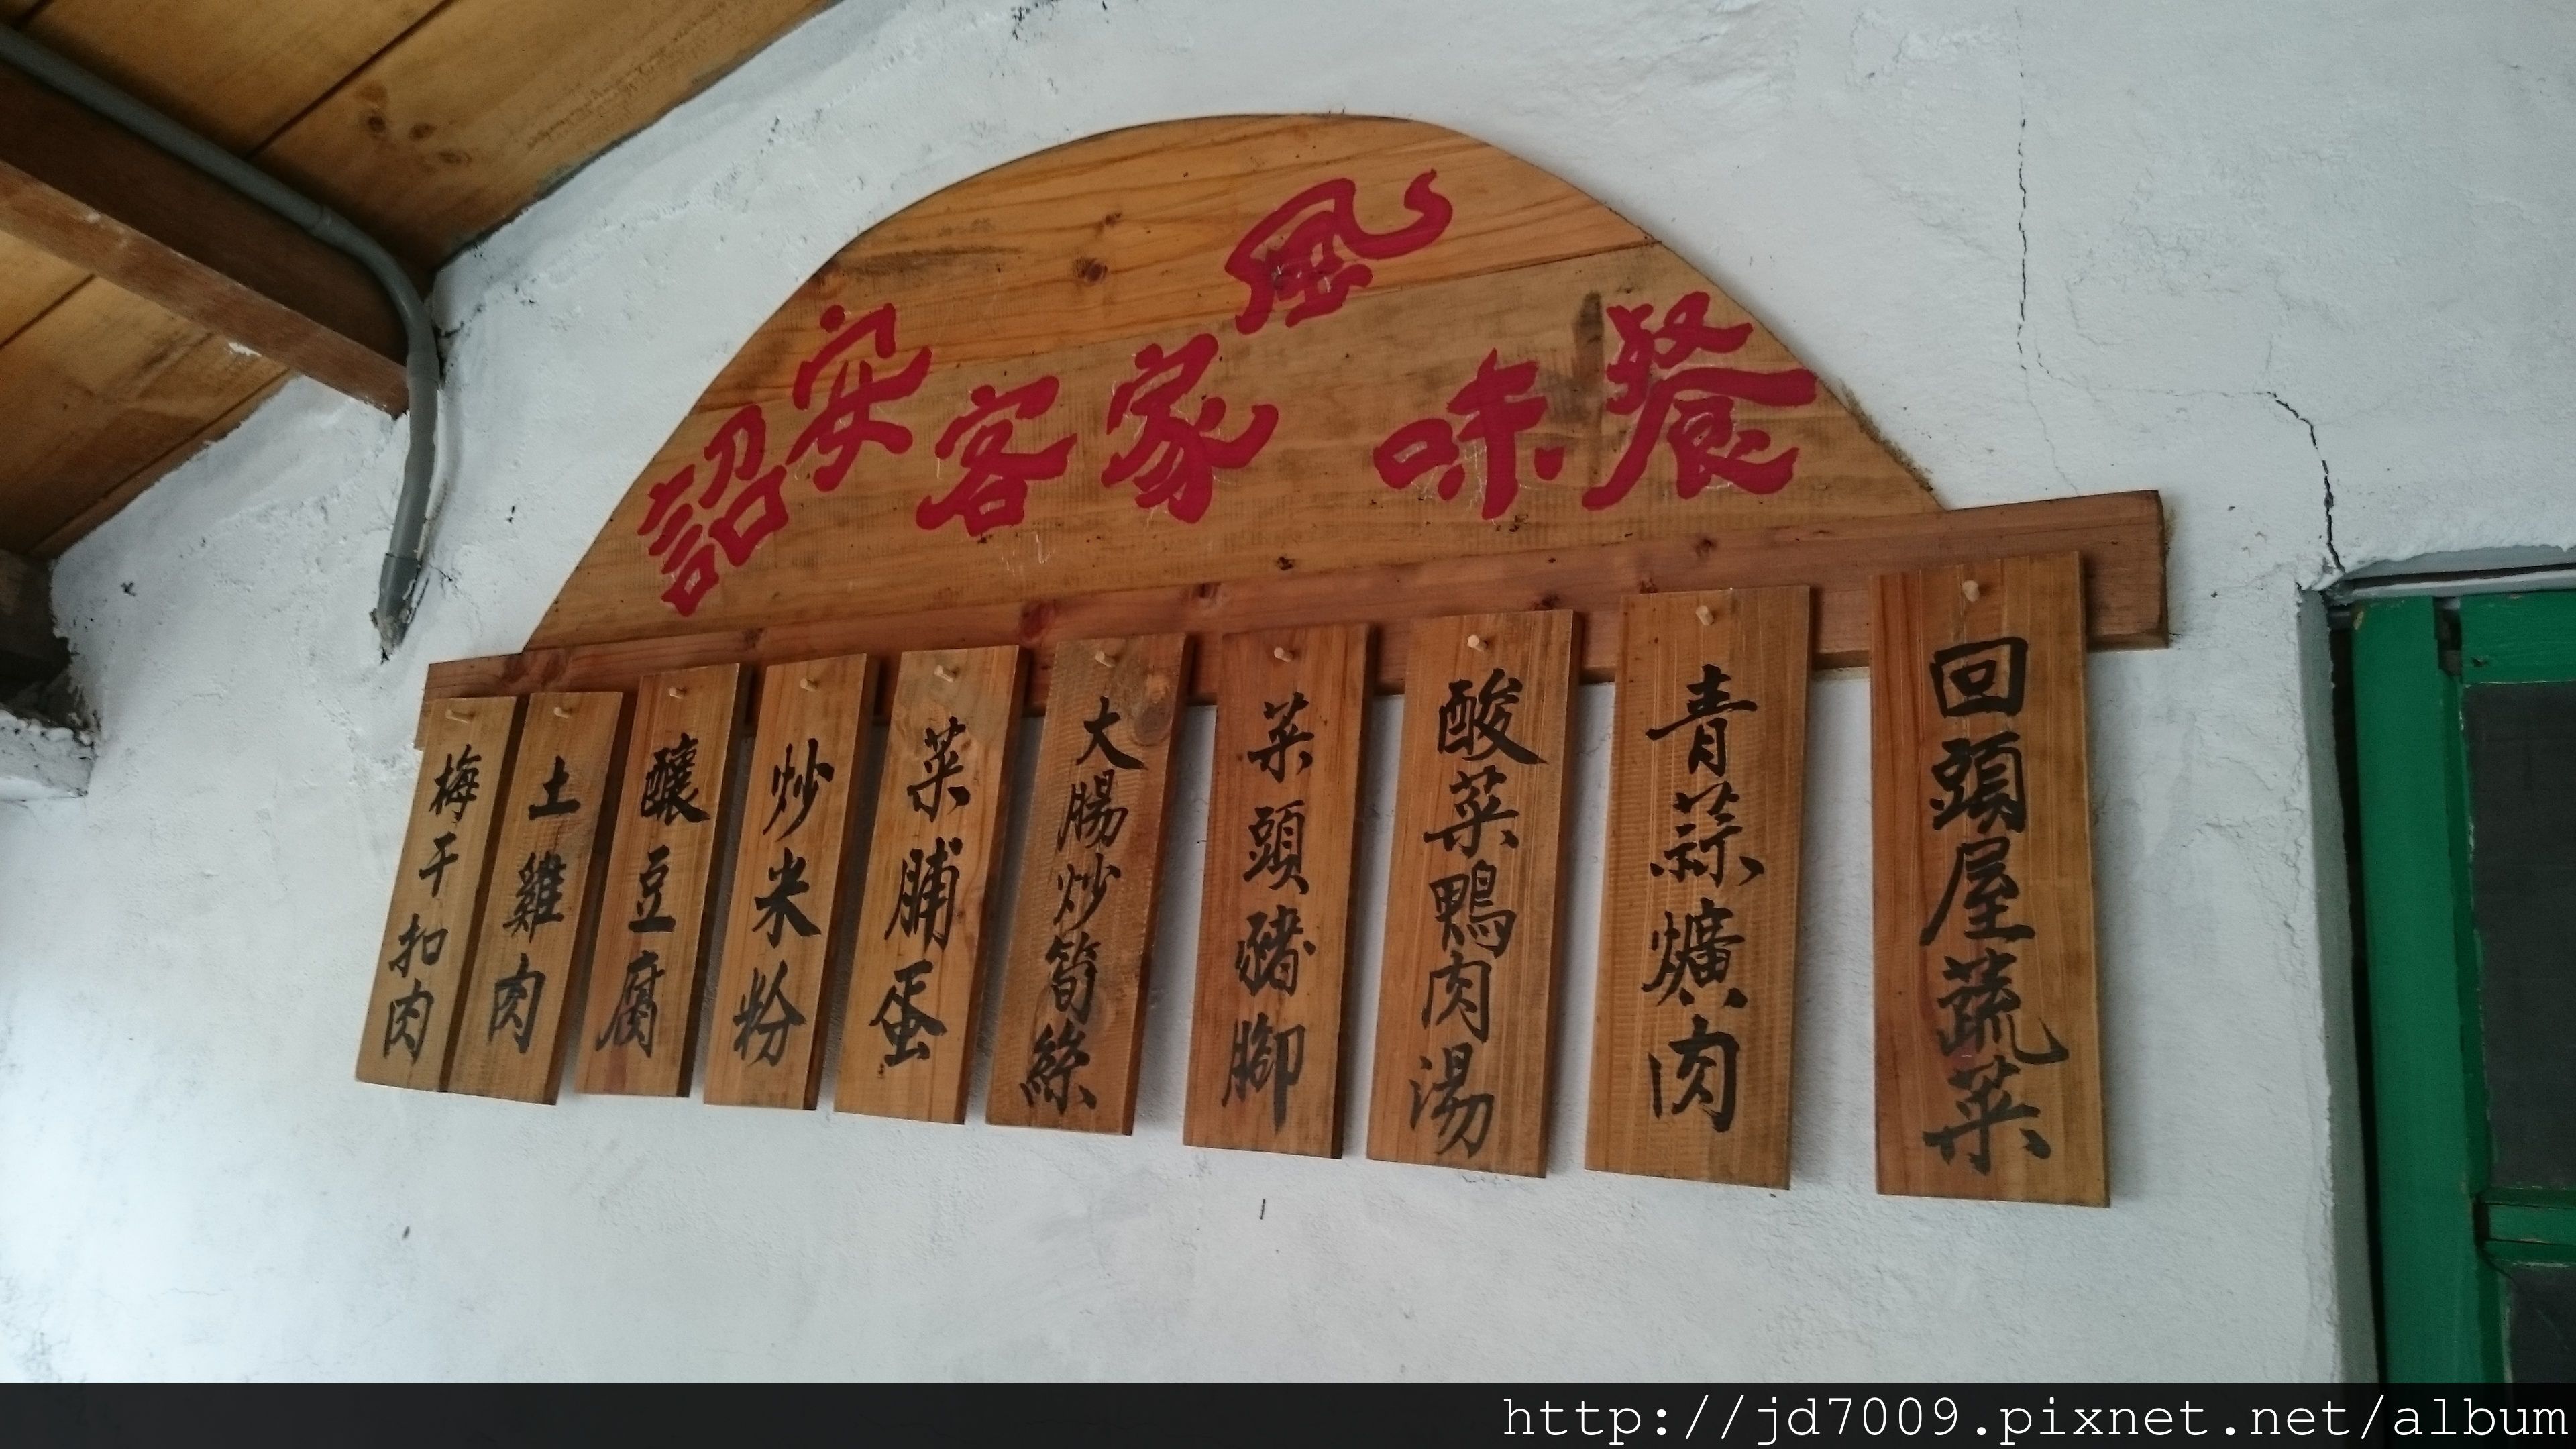 詔安客家風味餐
梅干扣肉
土雞肉
釀豆腐
炒米粉
菜脯蛋
大腸炒筍絲
菜頭豬腳
酸菜鴨肉湯
青蒜爌肉
回頭屋蔬菜
http://jd7009.pixnet.net/album